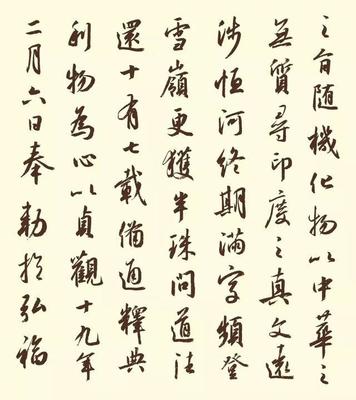 之旨随機化物以中華之
無質尋印度之真文遠
涉恒河終期滿字頻登
雪嶺更獲半珠問道法
還十有七載備通釋典
利物為心以貞觀十九年
二月六日奉勅於弘福